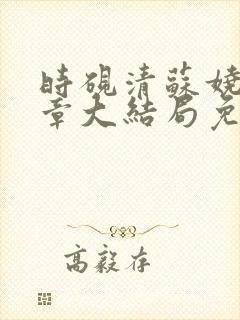 時硯清蘇嬈
章大結局免
高毅存